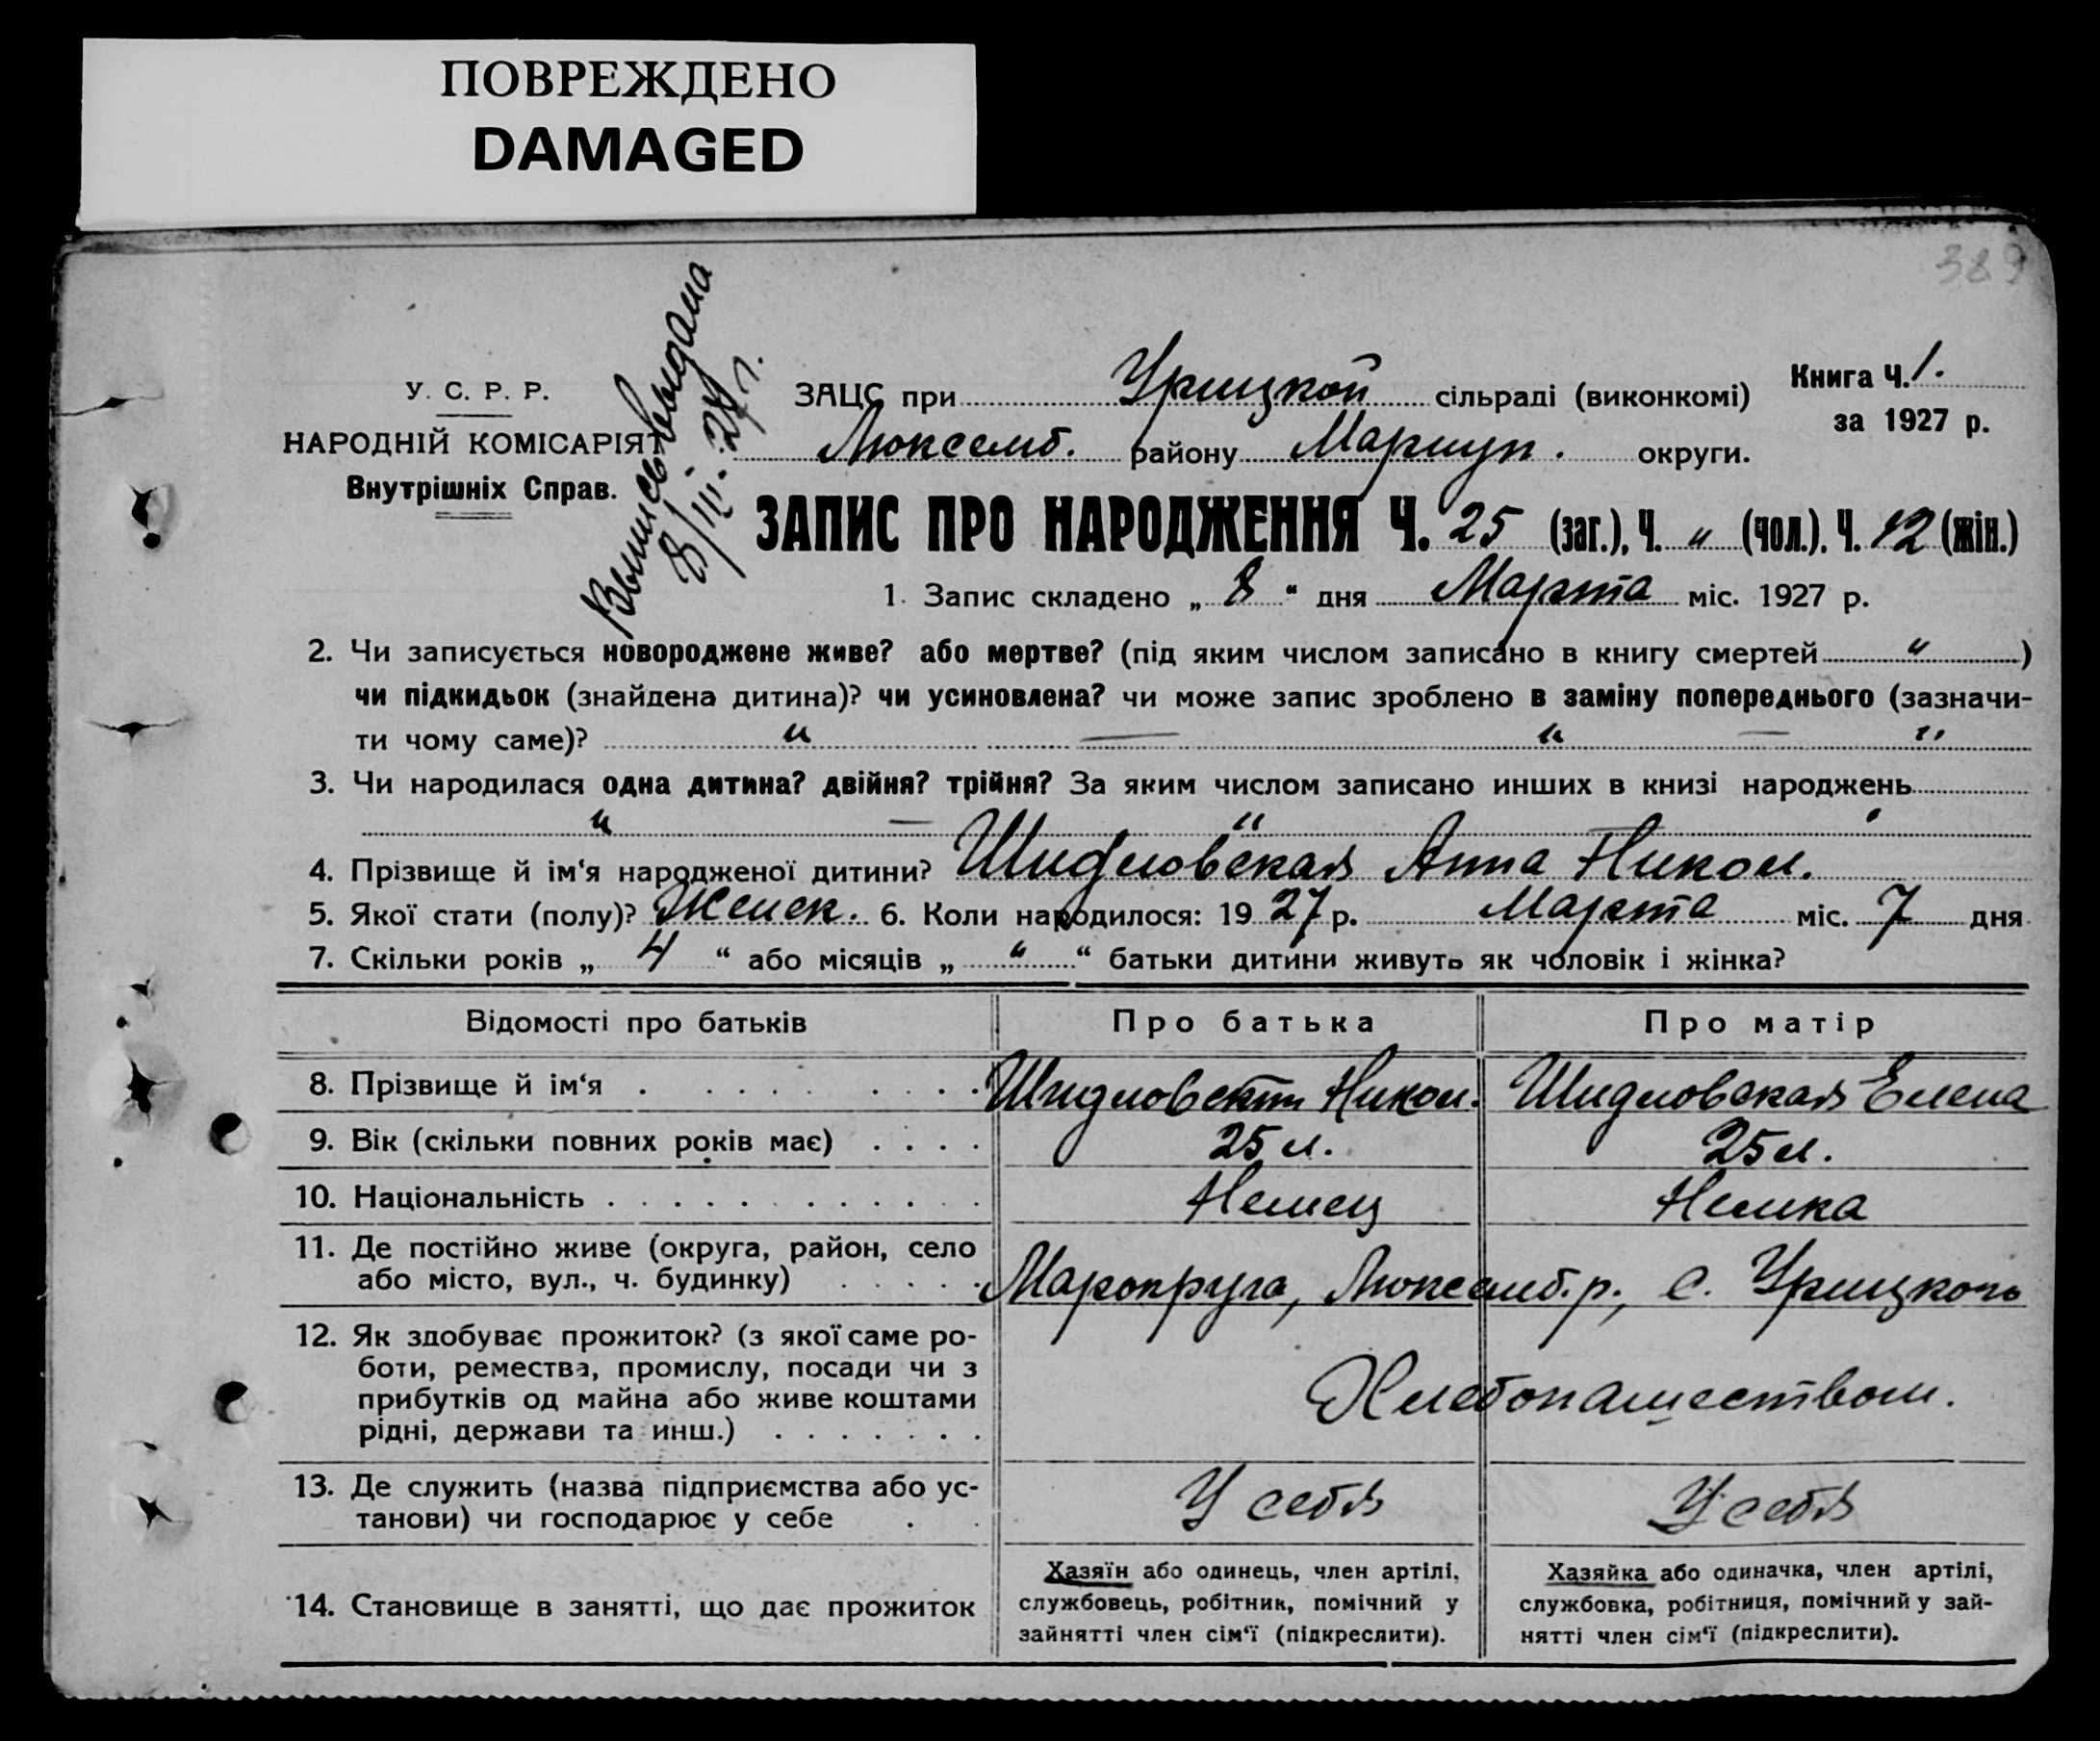 ПОВРЕЖДЕНО
DAMAGED
389
Выпись выдана
8/III 27 г.
У. С. Р. Р.
НАРОДНІЙ КОМІСАРІЯТ
Внутрішніх Справ.
ЗАЦС при Урицкой сільраді (виконкомі)
Люксемб. району Мариуп. округи.
Книга Ч. 1.
за 1927 р.
ЗАПИС ПРО НАРОДЖЕННЯ Ч. 25 (заг.), Ч. „ (чол.), Ч. 12 (жін.)
1. Запис складено „ 8 “ дня Марта міс. 1927 р.
2. Чи записується новороджене живе? або мертве? (під яким числом записано в книгу смертей „ )
чи підкидьок (знайдена дитина)? чи усиновлена? чи може запис зроблено в заміну попереднього (зазначи-
ти чому саме)? „ — „ — „
3. Чи народилася одна дитина? двійня? трійня? За яким числом записано инших в книзі народжень
„ — „
4. Прізвище й ім‘я народженої дитини? Шидловская Анна Никол.
5. Якої стати (полу)? Женск. 6. Коли народилося: 19 27 р. Марта міс. 7 дня
7. Скільки років „ 4 “ або місяців „ „ “ батьки дитини живуть як чоловік і жінка?
Відомості про батьків Про батька Про матір
8. Прізвище й ім‘я Шидловский Никол. Шидловская Елена
9. Вік (скільки повних років має) 25 л. 25 л.
10. Національність Немец Немка
11. Де постійно живе (округа, район, село
або місто, вул., ч. будинку) Марокруга, Люксемб. р., с. Урицкого
12. Як здобуває прожиток? (з якої саме ро-
боти, ремества, промислу, посади чи з
прибутків од майна або живе коштами
рідні, держави та инш.) Хлебопашеством.
13. Де служить (назва підприємства або ус-
танови) чи господарює у себе У себя У себя
14. Становище в занятті, що дає прожиток
Хазяїн або одинець, член артілі,
службовець, робітник, помічний у
зайнятті член сім‘ї (підкреслити).
Хазяйка або одиначка, член артілі,
службовка, робітниця, помічний у зай-
нятті член сім‘ї (підкреслити).